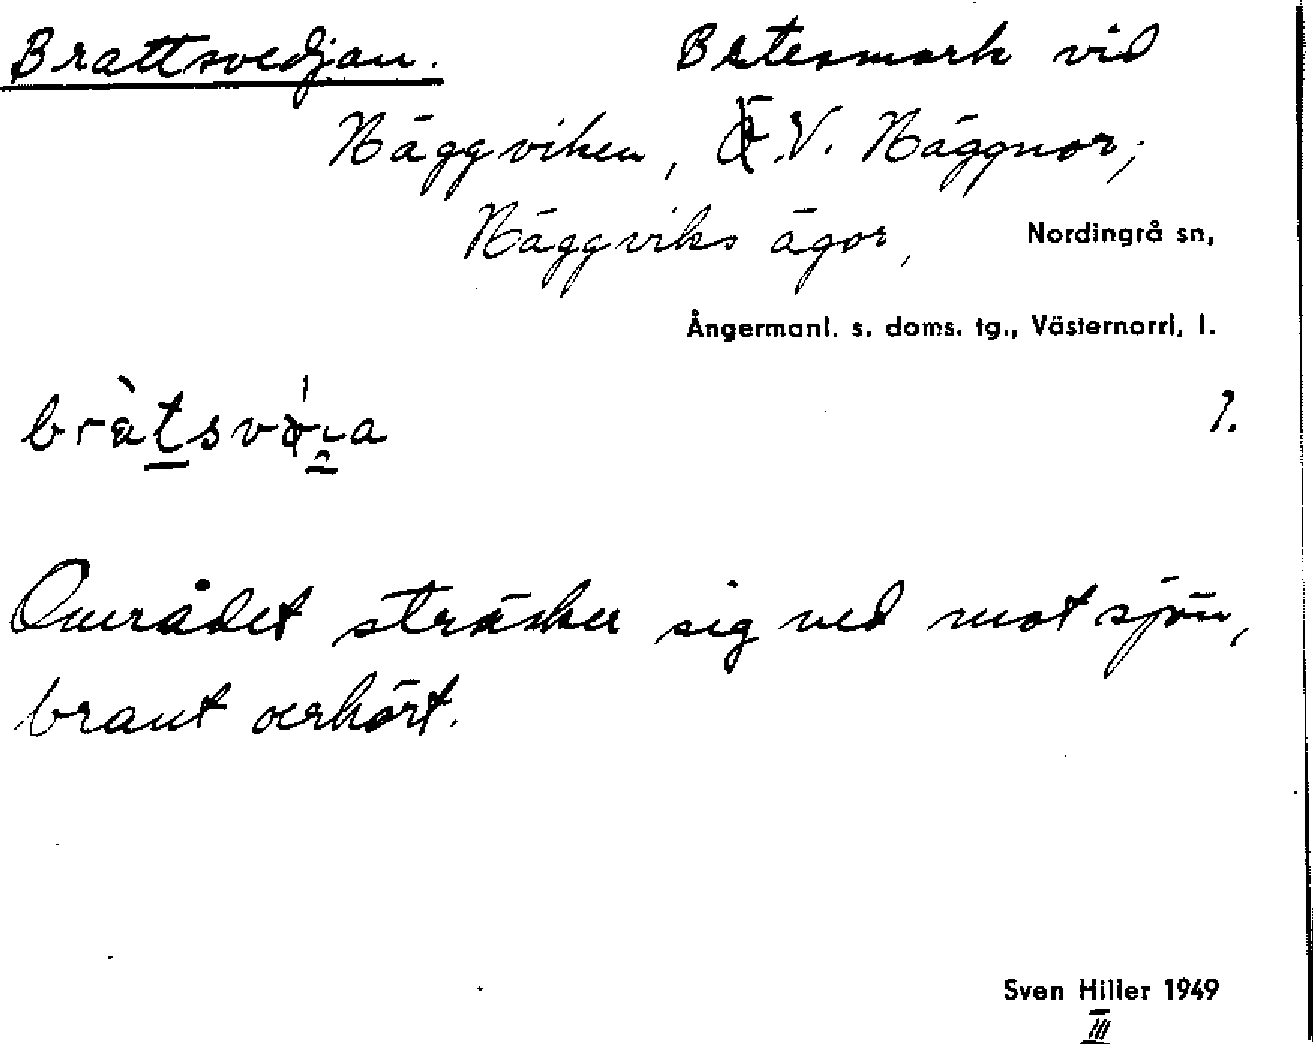 Brattsvedjan. Betesmark vid
Näggviken, V. Näggnor,
Näggviks ägor, Nordingrå sn,
Ångermanl. s. doms. tg., Västernorrl. l.
1.
Området sträcker sig ned mot sjön,
brant oerhört.
Sven Hiller 1949
III